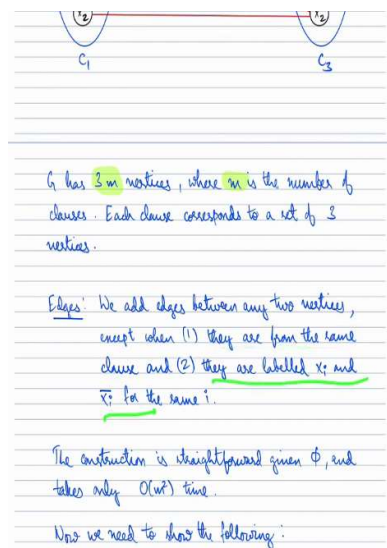 x₂ x₂
C₁ C₃
G has 3m vertices, where m is the number of
clauses. Each clause corresponds to a set of 3
vertices.
Edges: We add edges between any two vertices,
except when (1) they are from the same
clause and (2) they are labelled xᵢ and
x̄ᵢ for the same i.
The construction is straightforward given ϕ, and
takes only O(m²) time.
Now we need to show the following: